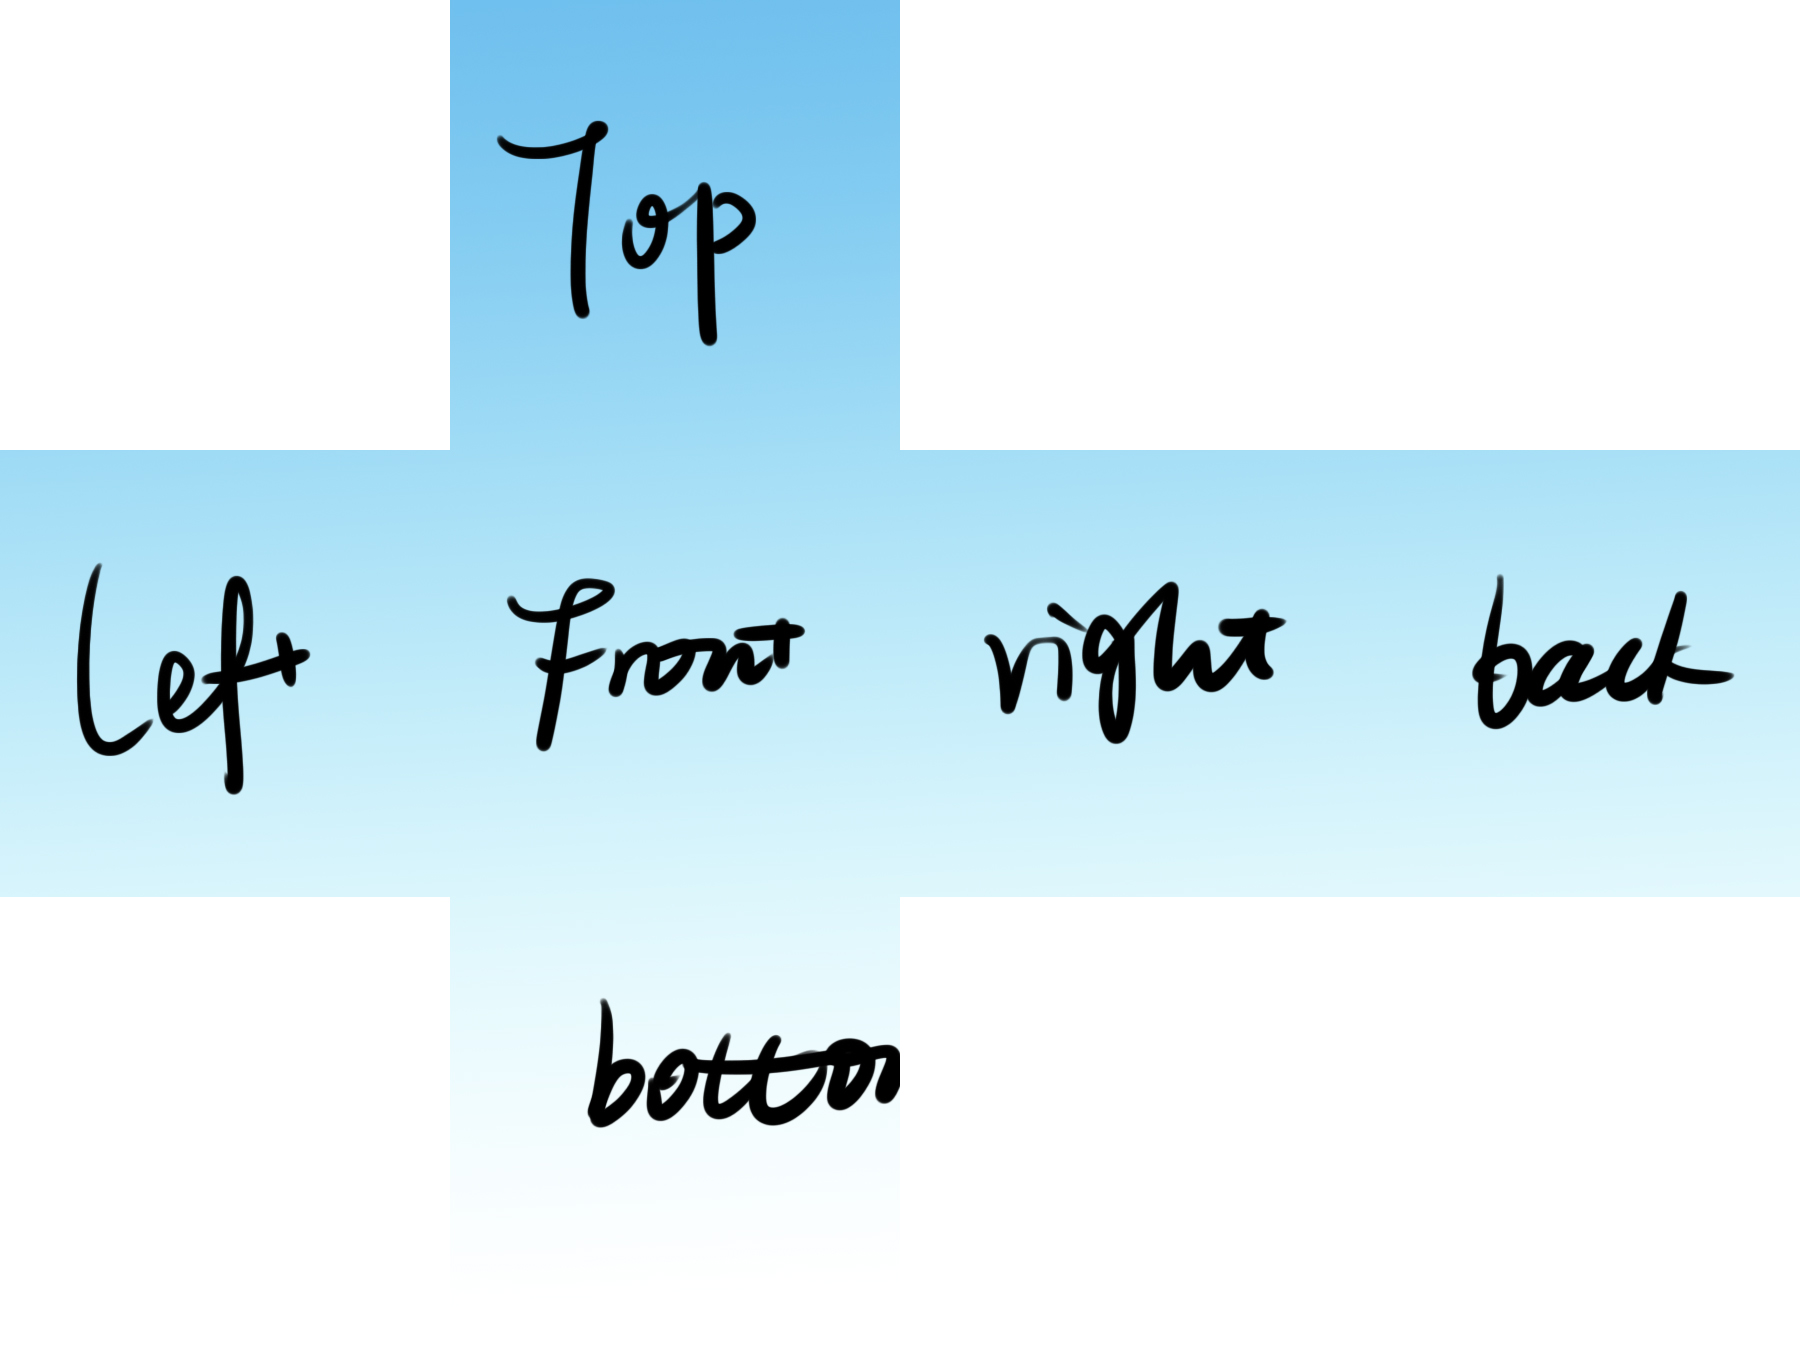 Top
Left Front right back
botton